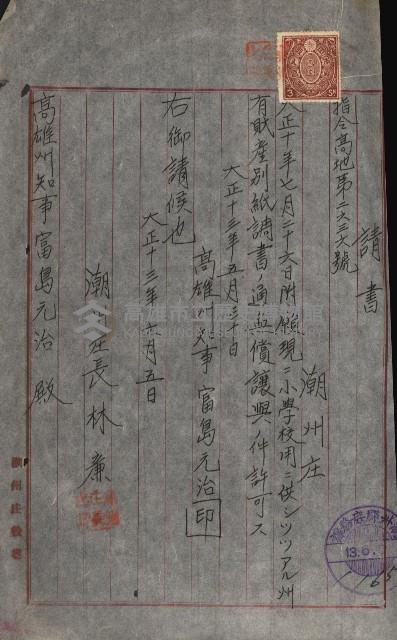 請書
指令高地第二六三六號
潮州庄
大正十年七月二十六日附願現ニ小學校用ニ供シツツアル州
有財產別紙調書ノ通無償讓與ノ件許可ス
大正十三年五月三十日
高雄州知事 富島元治 印
右御請候也
大正十三年六月五日
潮州庄長 林 廉
高雄州知事 富島元治 殿
潮州庄役場